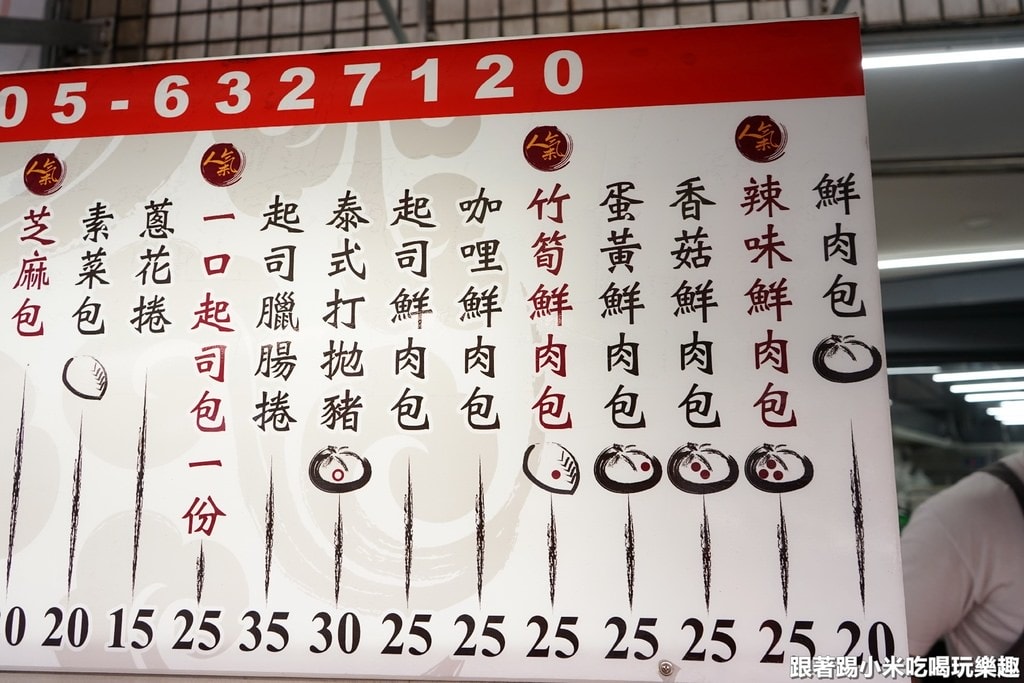 05-6327120
鮮肉包 20
人氣 辣味鮮肉包 25
香菇鮮肉包 25
蛋黃鮮肉包 25
人氣 竹筍鮮肉包 25
咖哩鮮肉包 25
起司鮮肉包 25
泰式打拋豬 30
起司臘腸捲 35
人氣 一口起司包一份 25
蔥花捲 15
素菜包 20
人氣 芝麻包
跟著踢小米吃喝玩樂趣